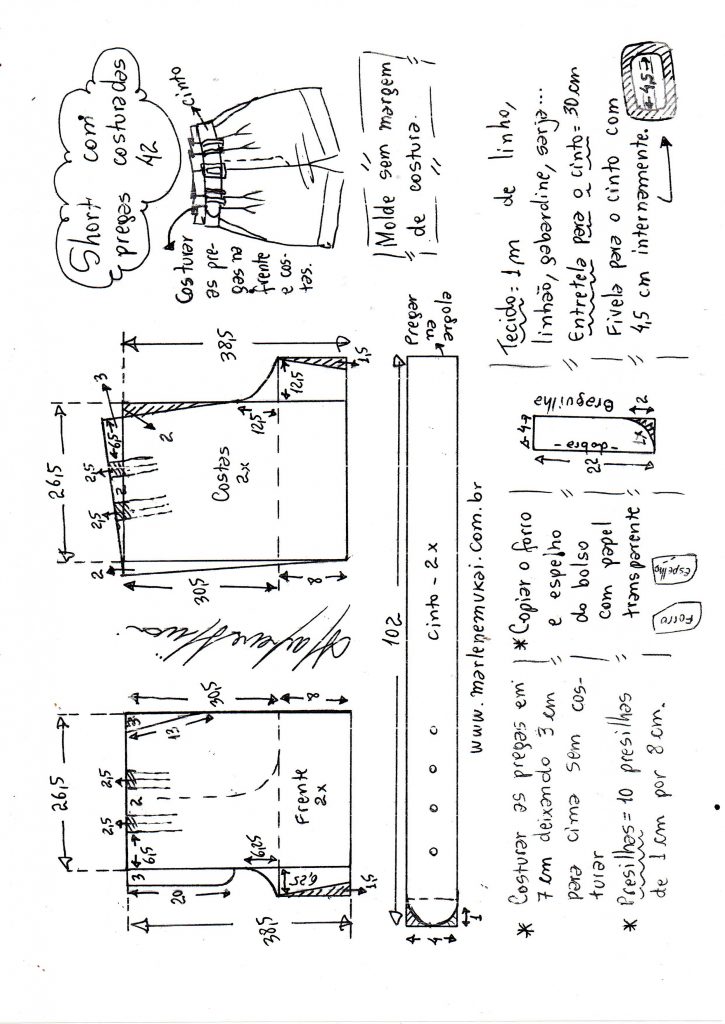 Short com
pregas costuradas
42
cinto
Costurar
as pre-
gas na
frente
e cos-
tas.
Molde sem margem
de costura.
26,5
38,5
30,5
8
2
2,5
2
2,5
6,5
3
2
12,5
12,5
1,5
Costas
2x
26,5
38,5
30,5
8
3
20
6,5
2,5
2
2,5
3
13
6,25
6,25
1,5
Frente
2x
102
4
1
cinto - 2x
Pregar
na
argola
www.marlenemukai.com.br
* Costurar as pregas em
7 cm deixando 3 cm
para cima sem cos-
turar
* Presilhas = 10 presilhas
de 1 cm por 8 cm.
* Copiar o forro
e espelho
do bolso
com papel
transparente
Forro
Espelho
4
22
-dobra-
1x
2
Braguilha
Tecido: 1 m de linho,
linhão, gabardine, sarja...
Entretela para o cinto = 30 cm
Fivela para o cinto com
4,5 cm internamente.
4,5